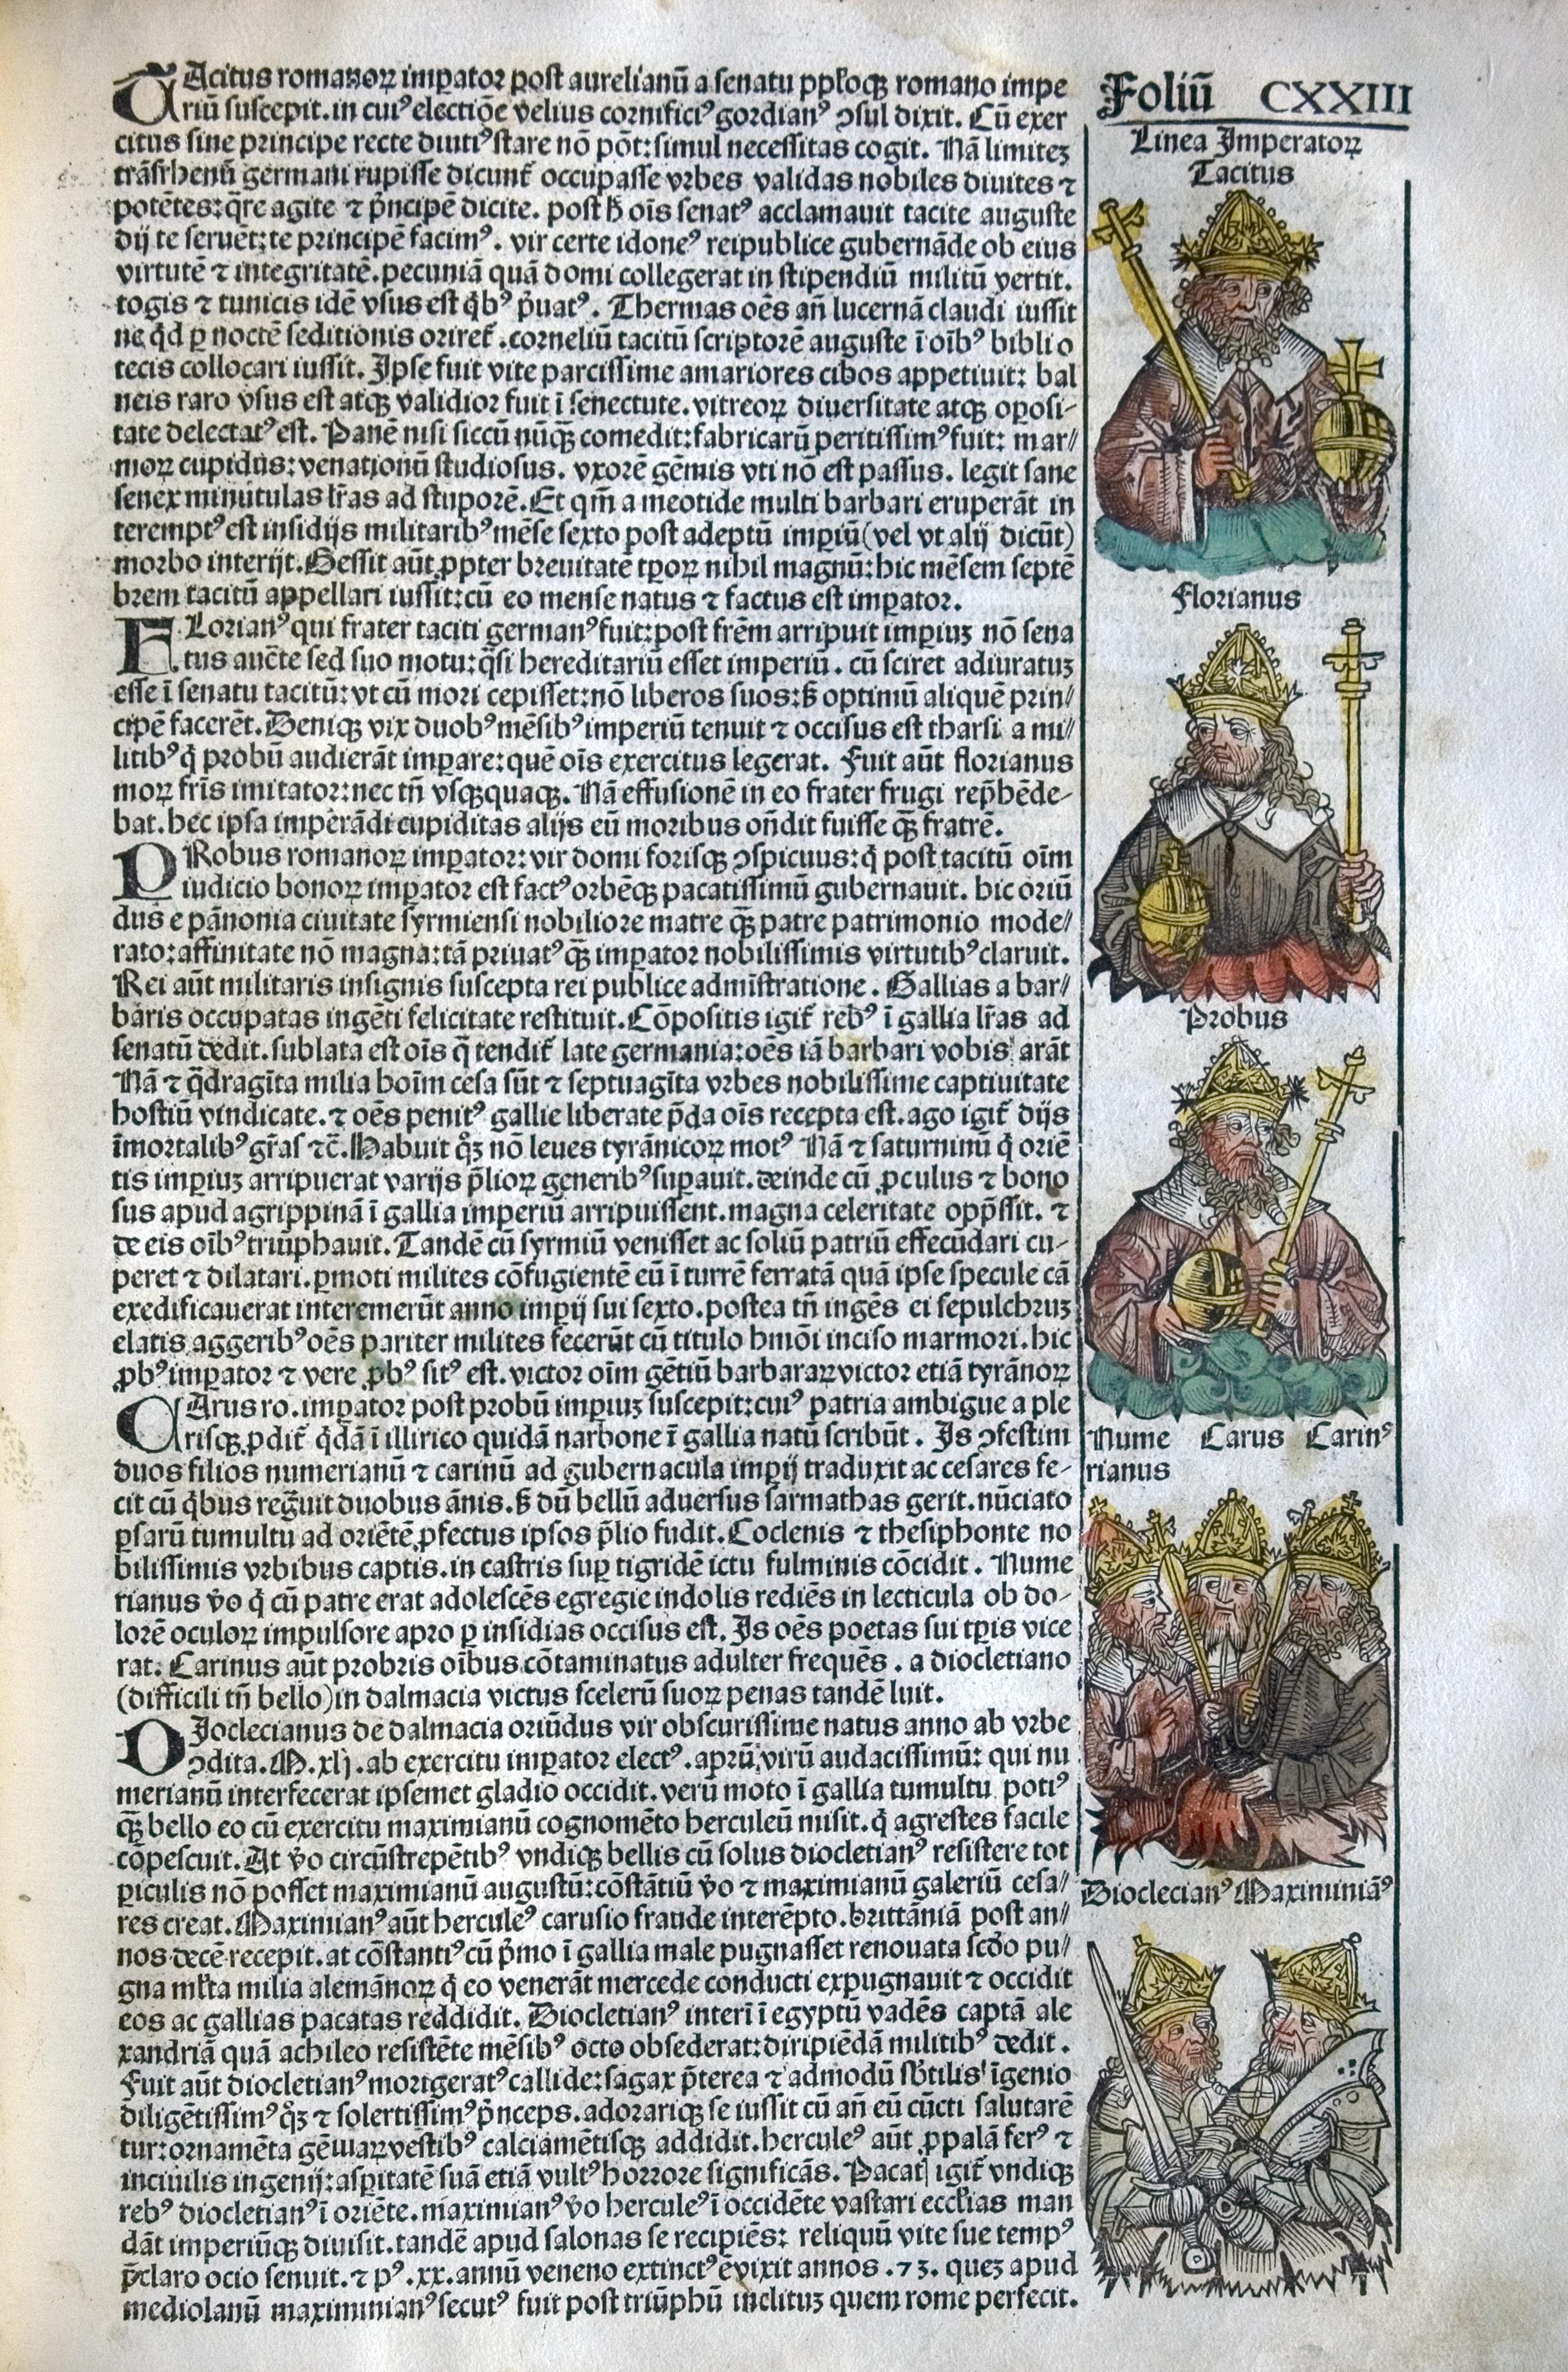 Foliū CXXIII
Linea Imperatoꝝ
Tacitus
Florianus
Probus
Nume Carus Carinꝰ
rianus
Dioclecianꝰ Maximiniāꝰ
TAcitus romanoꝝ imꝑator post aurelianū a senatu pp̄loqꝫ romano impe
riū suscepit. in cuiꝰ electiōe velius cornificiꝰ gordianꝰ ↄsul dixit. Cū exer
citus sine principe recte diutiꝰ stare nō pōt: simul necessitas cogit. Nā limiteꝫ
trāsrhenū germani rupisse dicunt᷑ occupasse vrbes validas nobiles diuites ⁊
potētes: q̄re agite ⁊ p̄ncipē dicite. post ħ oīs senatꝰ acclamauit tacite auguste
dij te seruēt: te principē facimꝰ. vir certe idoneꝰ reipublice gubernāde ob eius
virtutē ⁊ integritatē. pecuniā quā domi collegerat in stipendiū militū vertit.
togis ⁊ tunicis idē vsus est q̇bꝰ p̄uatꝰ. Thermas oēs añ lucernā claudi iussit
ne q̇d ꝑ noctē seditionis oriret᷑. corneliū tacitū scriptorē auguste ī oībꝰ biblio
tecis collocari iussit. Ipse fuit vite parcissime amariores cibos appetiuit: bal
neis raro vsus est atqꝫ validior fuit ī senectute. vitreoꝝ diuersitate atqꝫ oposi-
tate delectatꝰ est. Panē nisi siccū nūq̄ꝫ comedit: fabricarū peritissimꝰ fuit: mar//
moꝝ cupidus: venationū studiosus. vxorē gēmis vti nō est passus. legit sane
senex minutulas lr̄as ad stuporē. Et qm̄ a meotide multi barbari eruperāt in
teremptꝰ est insidijs militaribꝰ mēse sexto post adeptū imꝑiū (vel vt alij dicūt)
morbo interijt. Gessit aūt ꝓpter breuitatē tꝑoꝝ nihil magnū: hic mēsem septē
brem tacitū appellari iussit: cū eo mense natus ⁊ factus est imꝑator.
FLorianꝰ qui frater taciti germanꝰ fuit: post frēm arripuit imꝑiuꝫ nō sena
tus auc̄te sed suo motu: q̄si hereditariū esset imperiū. cū sciret adiuratuꝫ
esse ī senatu tacitū: vt cū mori cepisset: nō liberos suos: ꝫ optimū aliquē prin//
cipē facerēt. Deniqꝫ vix duobꝰ mēsibꝰ imperiū tenuit ⁊ occisus est tharsi a mi//
litibꝰ q̇ probū audierāt imꝑare: quē oīs exercitus legerat. Fuit aūt florianus
moꝝ fr̄is imitator: nec tn̄ vsqꝫquaqꝫ. Nā effusionē in eo frater frugi rep̄hēde-
bat. hec ipsa imperādi cupiditas alijs eū moribus on̄dit fuisse q̄ꝫ fratrē.
PRobus romanoꝝ imꝑator: vir domi forisqꝫ ↄspicuus: q̇ post tacitū oīm
iudicio bonoꝝ imꝑator est factꝰ orbēqꝫ pacatissimū gubernauit. hic oriū
dus e pānonia ciuitate syrmiensi nobiliore matre q̄ꝫ patre patrimonio mode//
rato: affinitate nō magna: tā priuatꝰ q̄ꝫ imꝑator nobilissimis virtutibꝰ claruit.
Rei aūt militaris insignis suscepta rei publice administratione. Gallias a bar//
baris occupatas ingēti felicitate restituit. Cōpositis igit᷑ rebꝰ ī gallia lr̄as ad
senatū dedit. sublata est oīs q̄ tendit᷑ late germania: oēs iā barbari vobis arāt
Nā ⁊ q̄dragīta milia hoīm cesa sūt ⁊ septuagīta vrbes nobilissime captiuitate
hostiū vindicate. ⁊ oēs penitꝰ gallie liberate p̄da oīs recepta est. ago igit᷑ dijs
īmortalibꝰ gr̄as ⁊c̄. Habuit q̊ꝫ nō leues tyrānicoꝝ motꝰ Nā ⁊ saturninū q̇ oriē
tis imꝑiuꝫ arripuerat varijs p̄lioꝝ generibꝰ suꝑauit. deinde cū ꝓculus ⁊ bono
sus apud agrippinā ī gallia imperiū arripuissent. magna celeritate opp̄ssit. ⁊
de eis oībꝰ triūphauit. Tandē cū syrmiū venisset ac soliū patriū effecūdari cu-
peret ⁊ dilatari. ꝑmoti milites cōfugientē eū ī turrē ferratā quā ipse specule cā
exedificauerat interemerūt anno imꝑij sui sexto. postea tn̄ ingēs ei sepulchruꝫ
elatis aggeribꝰ oēs pariter milites fecerūt cū titulo hmōi inciso marmori. hic
ꝓbꝰ imꝑator ⁊ vere ꝓbꝰ sitꝰ est. victor oīm gētiū barbaraꝝ victor etiā tyrānoꝝ
CArus ro. imꝑator post probū imꝑiuꝫ suscepit: cuiꝰ patria ambigue a ple
risqꝫ ꝓdit᷑ q̇dā ī illirico quidā narbone ī gallia natū scribūt. Is ↄfestim
duos filios numerianū ⁊ carinū ad gubernacula imꝑij traduxit ac cesares fe-
cit cū q̇bus regnuit duobus ānis. ꝫ dū bellū aduersus sarmathas gerit. nūciato
ꝑsarū tumultu ad oriētē ꝓfectus ipsos p̄lio fudit. Coclenis ⁊ thesiphonte no
bilissimis vrbibus captis. in castris suꝑ tigridē ictu fulminis cōcidit. Nume
rianus v̊o q̇ cū patre erat adolescēs egregie indolis rediēs in lecticula ob do-
lorē oculoꝝ impulsore apro ꝑ insidias occisus est. Is oēs poetas sui tꝑis vice
rat. Carinus aūt probris oībus cōtaminatus adulter frequēs. a diocletiano
(difficili tn̄ bello) in dalmacia victus scelerū suoꝝ penas tandē luit.
DIoclecianus de dalmacia oriūdus vir obscurissime natus anno ab vrbe
ↄdita. M.xlj. ab exercitu imꝑator electꝰ. aprū virū audacissimū: qui nu
merianū interfecerat ipsemet gladio occidit. verū moto ī gallia tumultu potiꝰ
q̄ꝫ bello eo cū exercitu maximianū cognomēto herculeū misit. q̇ agrestes facile
cōpescuit. At v̊o circūstrepētibꝰ vndiqꝫ bellis cū solus diocletianꝰ resistere tot
ꝑiculis nō posset maximianū augustū: cōstātiū v̊o ⁊ maximianū galeriū cesa//
res creat. Maximianꝰ aūt herculeꝰ carusio fraude interēpto. brittāniā post an//
nos decē recepit. at cōstantiꝰ cū p̄mo ī gallia male pugnasset renouata scd̄o pu//
gna ml̄ta milia alemānoꝝ q̇ eo venerāt mercede conducti expugnauit ⁊ occidit
eos ac gallias pacatas reddidit. Diocletianꝰ interī ī egyptū vadēs captā ale
xandriā quā achileo resistēte mēsibꝰ octo obsederat: diripiēdā militibꝰ dedit.
Fuit aūt diocletianꝰ morigeratꝰ callide: sagax p̄terea ⁊ admodū sb̄tilis īgenio
diligētissimꝰ q̊ꝫ ⁊ solertissimꝰ p̄nceps. adorariqꝫ se iussit cū añ eū cūcti salutarē
tur: ornamēta gēmaꝝ vestibꝰ calciamētisqꝫ addidit. herculeꝰ aūt ꝓpalā ferꝰ ⁊
inciuilis ingenij: asꝑitatē suā etiā vultꝰ horrore significās. Pacat| igit᷑ vndiqꝫ
rebꝰ diocletianꝰ ī oriēte. maximianꝰ v̊o herculeꝰ ī occidēte vastari eccl̄ias man
dāt imperiūqꝫ diuisit. tandē apud salonas se recipiēs: reliquū vite sue tempꝰ
p̄claro ocio senuit. ⁊ pꝰ .xx. annū veneno extinctꝰ ē vixit annos .73. queꝫ apud
mediolanū maximinianꝰ secutꝰ fuit post triūphū inclituꝫ quem rome perfecit.